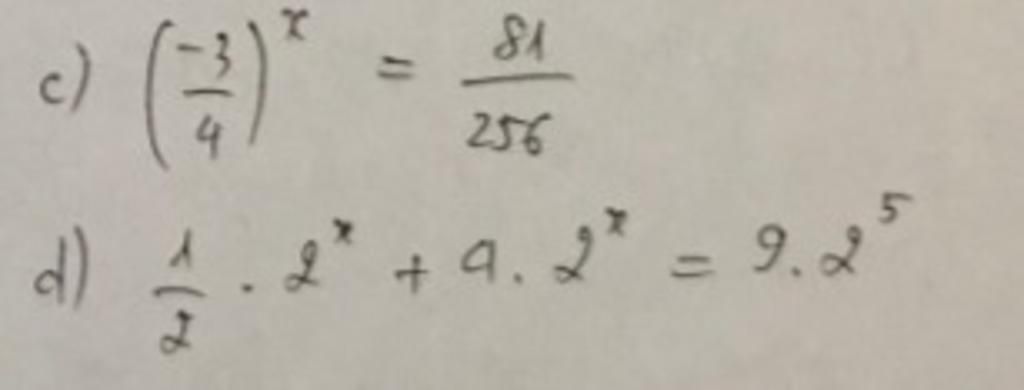 c) (-3/4)^x = 81/256
d) 1/2 . 2^x + 4. 2^x = 9. 2^5